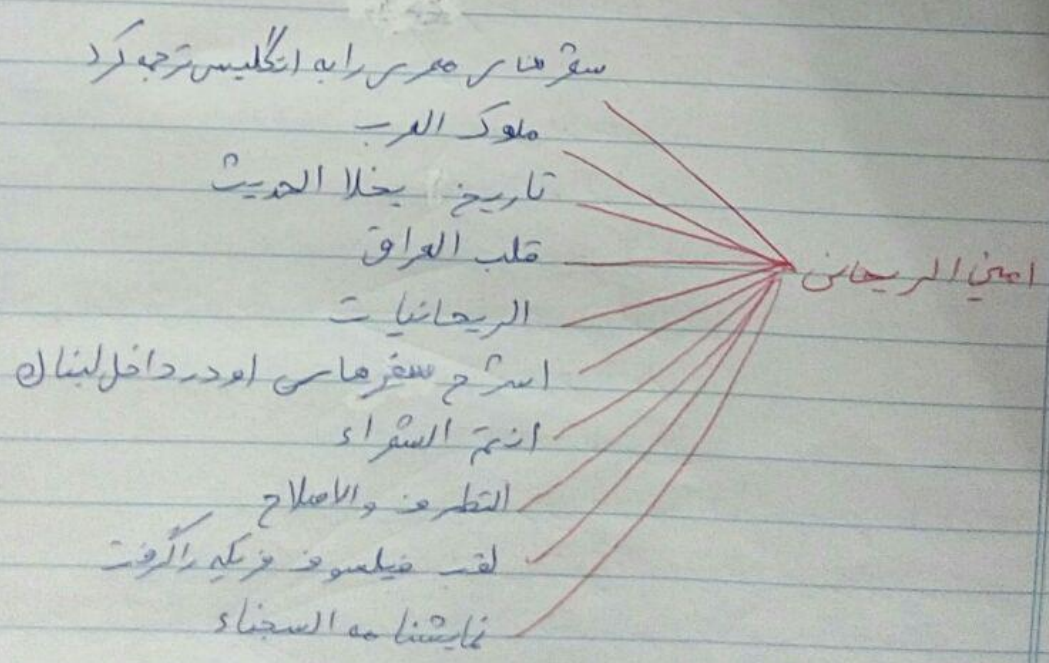 امین الریحانی
شعر های معری را به انگلیس ترجمه کرد
ملوک العرب
تاریخ الحدیث
قلب العراق
الریحانیات
اشرح سفرهای او در داخل لبنان
انتم الشعراء
التطرف والاصلاح
لقب فیلسوف فریکه را گرفت
نمایشنامه السجناء